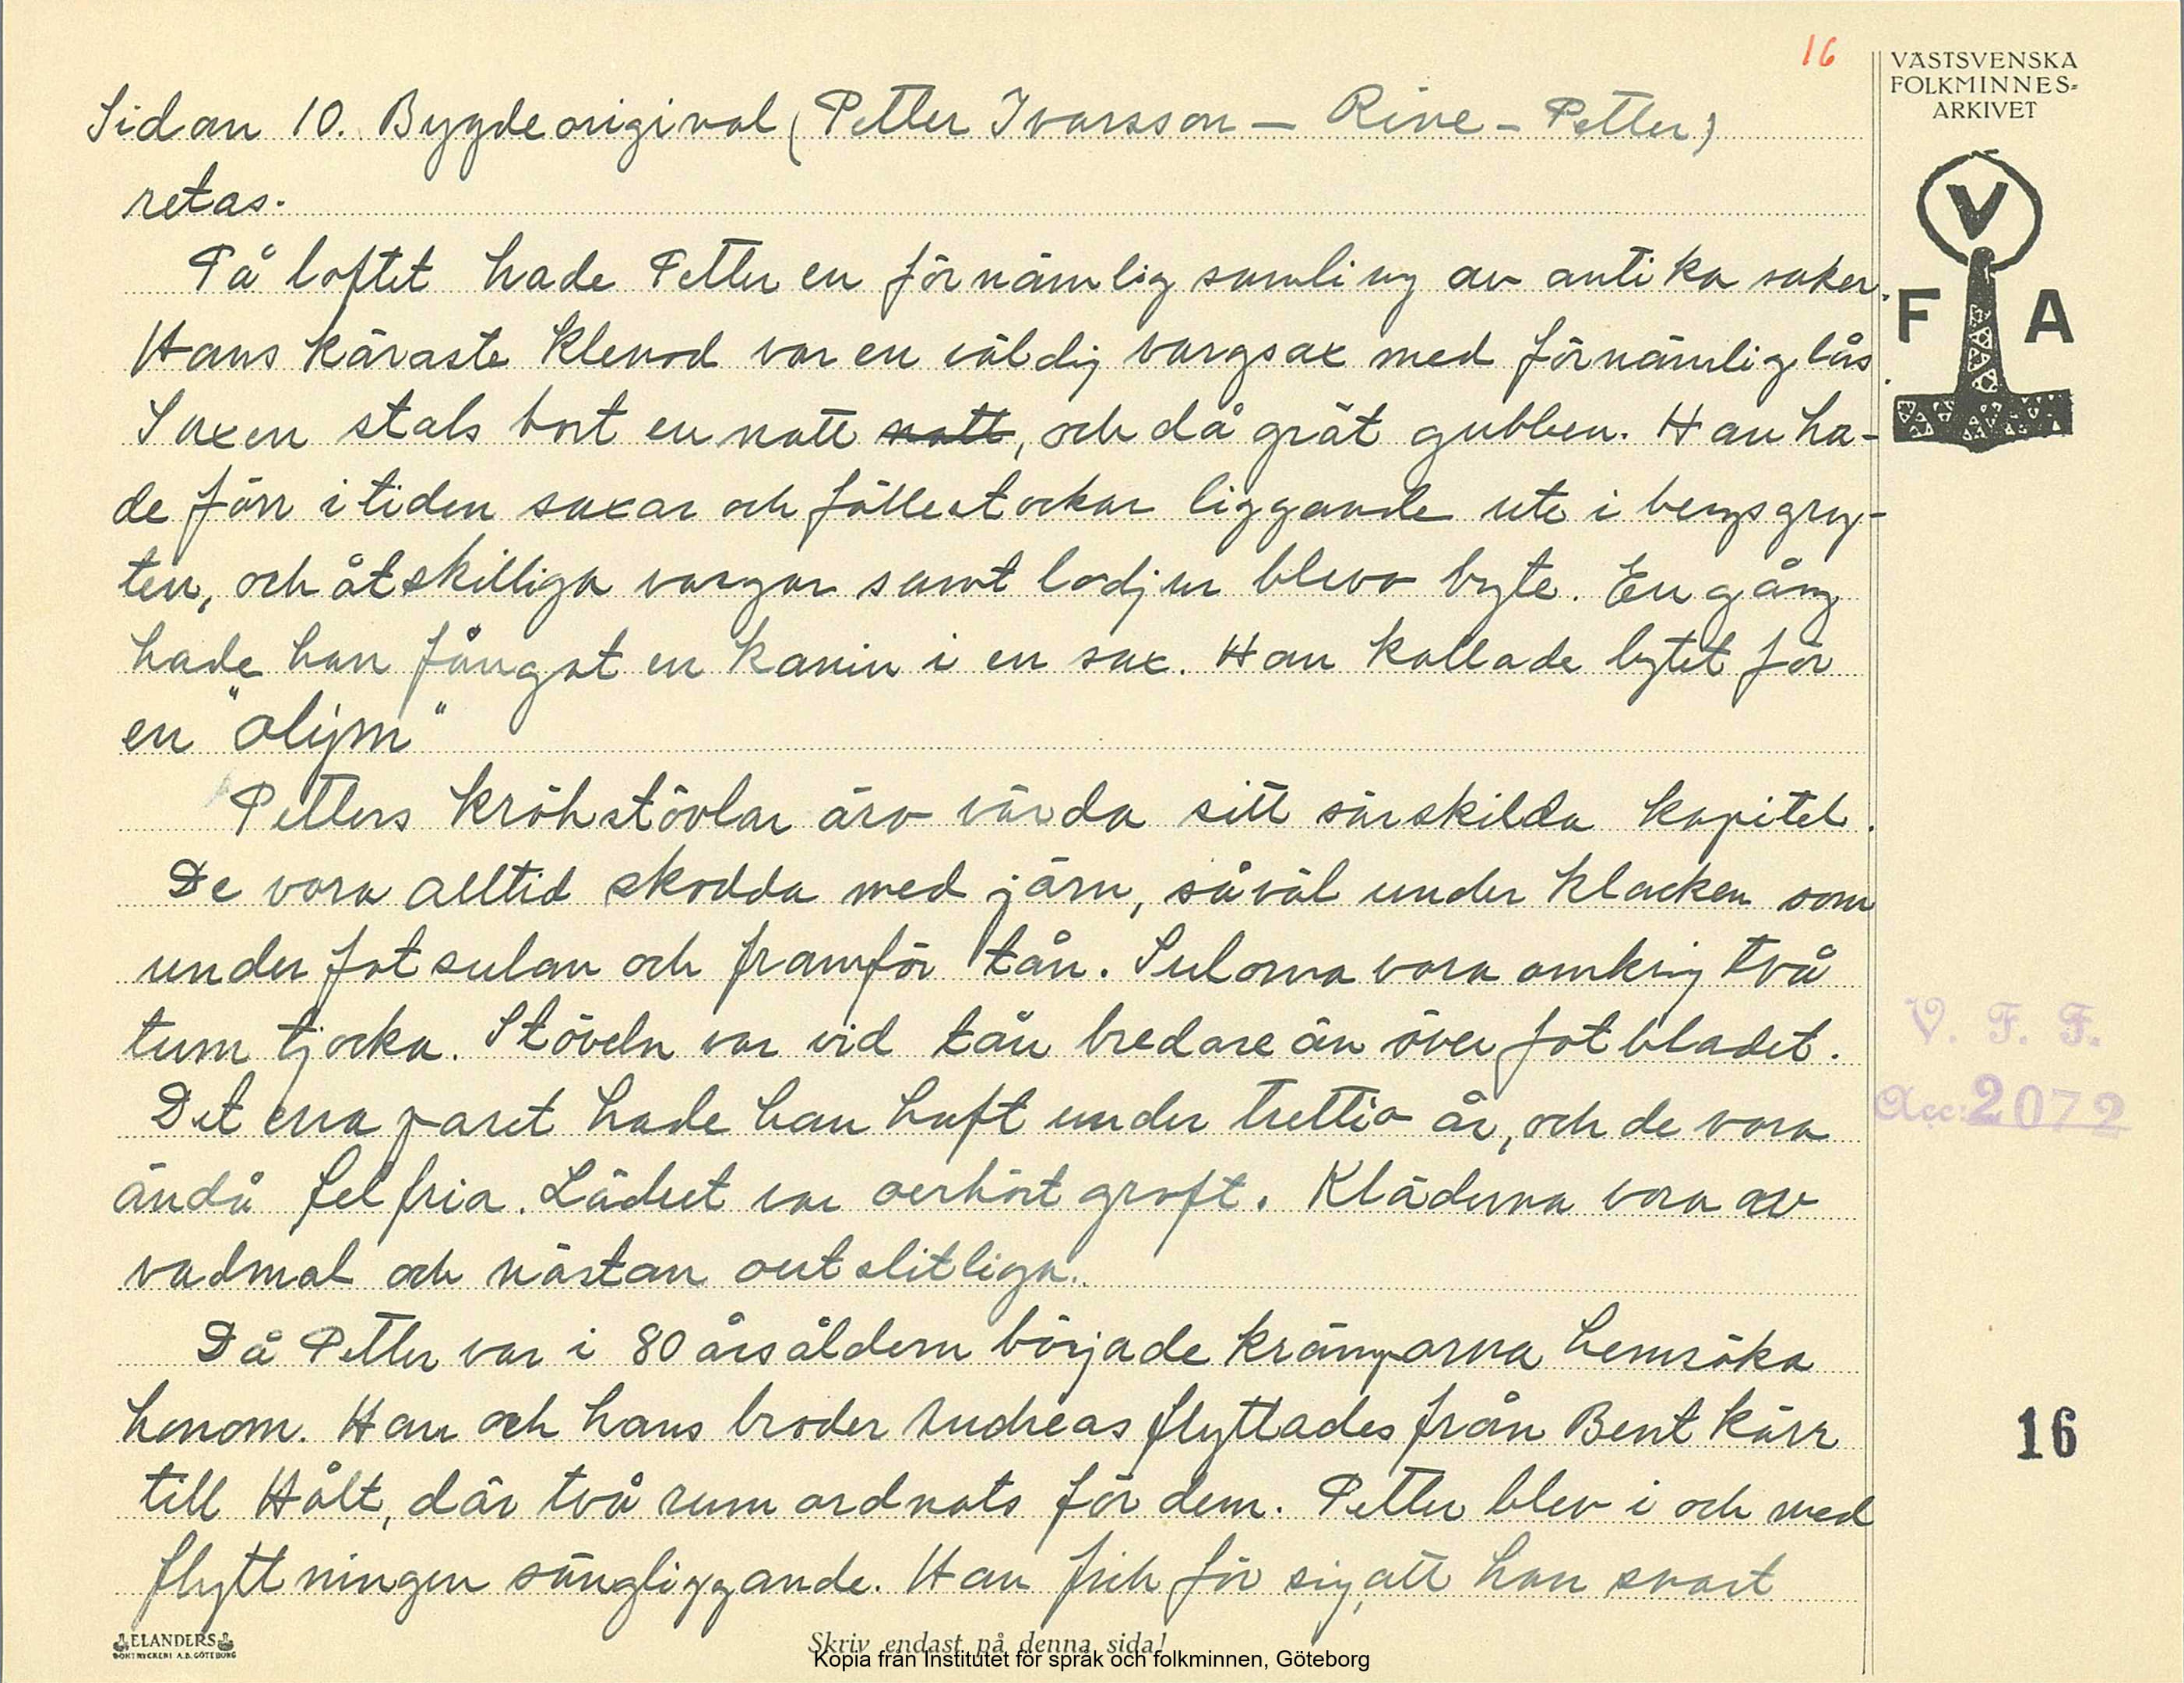 16
VÄSTSVENSKA
FOLKMINNES-
ARKIVET
V
F A
Sidan 10. Bygdeoriginal (Petter Ivarsson — Rine-Petter)
retas.
På loftet hade Petter en förnämlig samling av antika saker.
Hans käraste klenod var en väldig vargsax med förnämlig lås.
Saxen stals bort en natt natt, och då grät gubben. Han ha-
de förr i tiden saxar och fällestockar liggande ute i bergsgry-
ten, och åtskilliga vargar samt lodjur blevo byte. En gång
hade han fångat en kanin i en sax. Han kallade bytet för
en "olijm"
Petters kröhstövlar äro värda sitt särskilda kapitel.
De vora alltid skodda med järn, såväl under klacken som
under fotsulan och framför tån. Sulorna vora omkring två
tum tjocka. Stöveln var vid tån bredare än över fotbladet.
Det ena paret hade han haft under trettio år, och de vora
ändå felfria. Lädret var oerhört groft. Kläderna vora av
vadmal och nästan outslitliga.
Då Petter var i 80 årsåldern började krämporna hemsöka
honom. Han och hans broder Andreas flyttades från Bentkärr
till Hålt, där två rum ordnats för dem. Petter blev i och med
flyttningen sängliggande. Han fick för sig, att han snart
V. F. F.
Acc: 2072
16
ELANDERS
BOKTRYCKERI A.B. GÖTEBORG
Skriv endast på denna sida!
Kopia från Institutet för språk och folkminnen, Göteborg